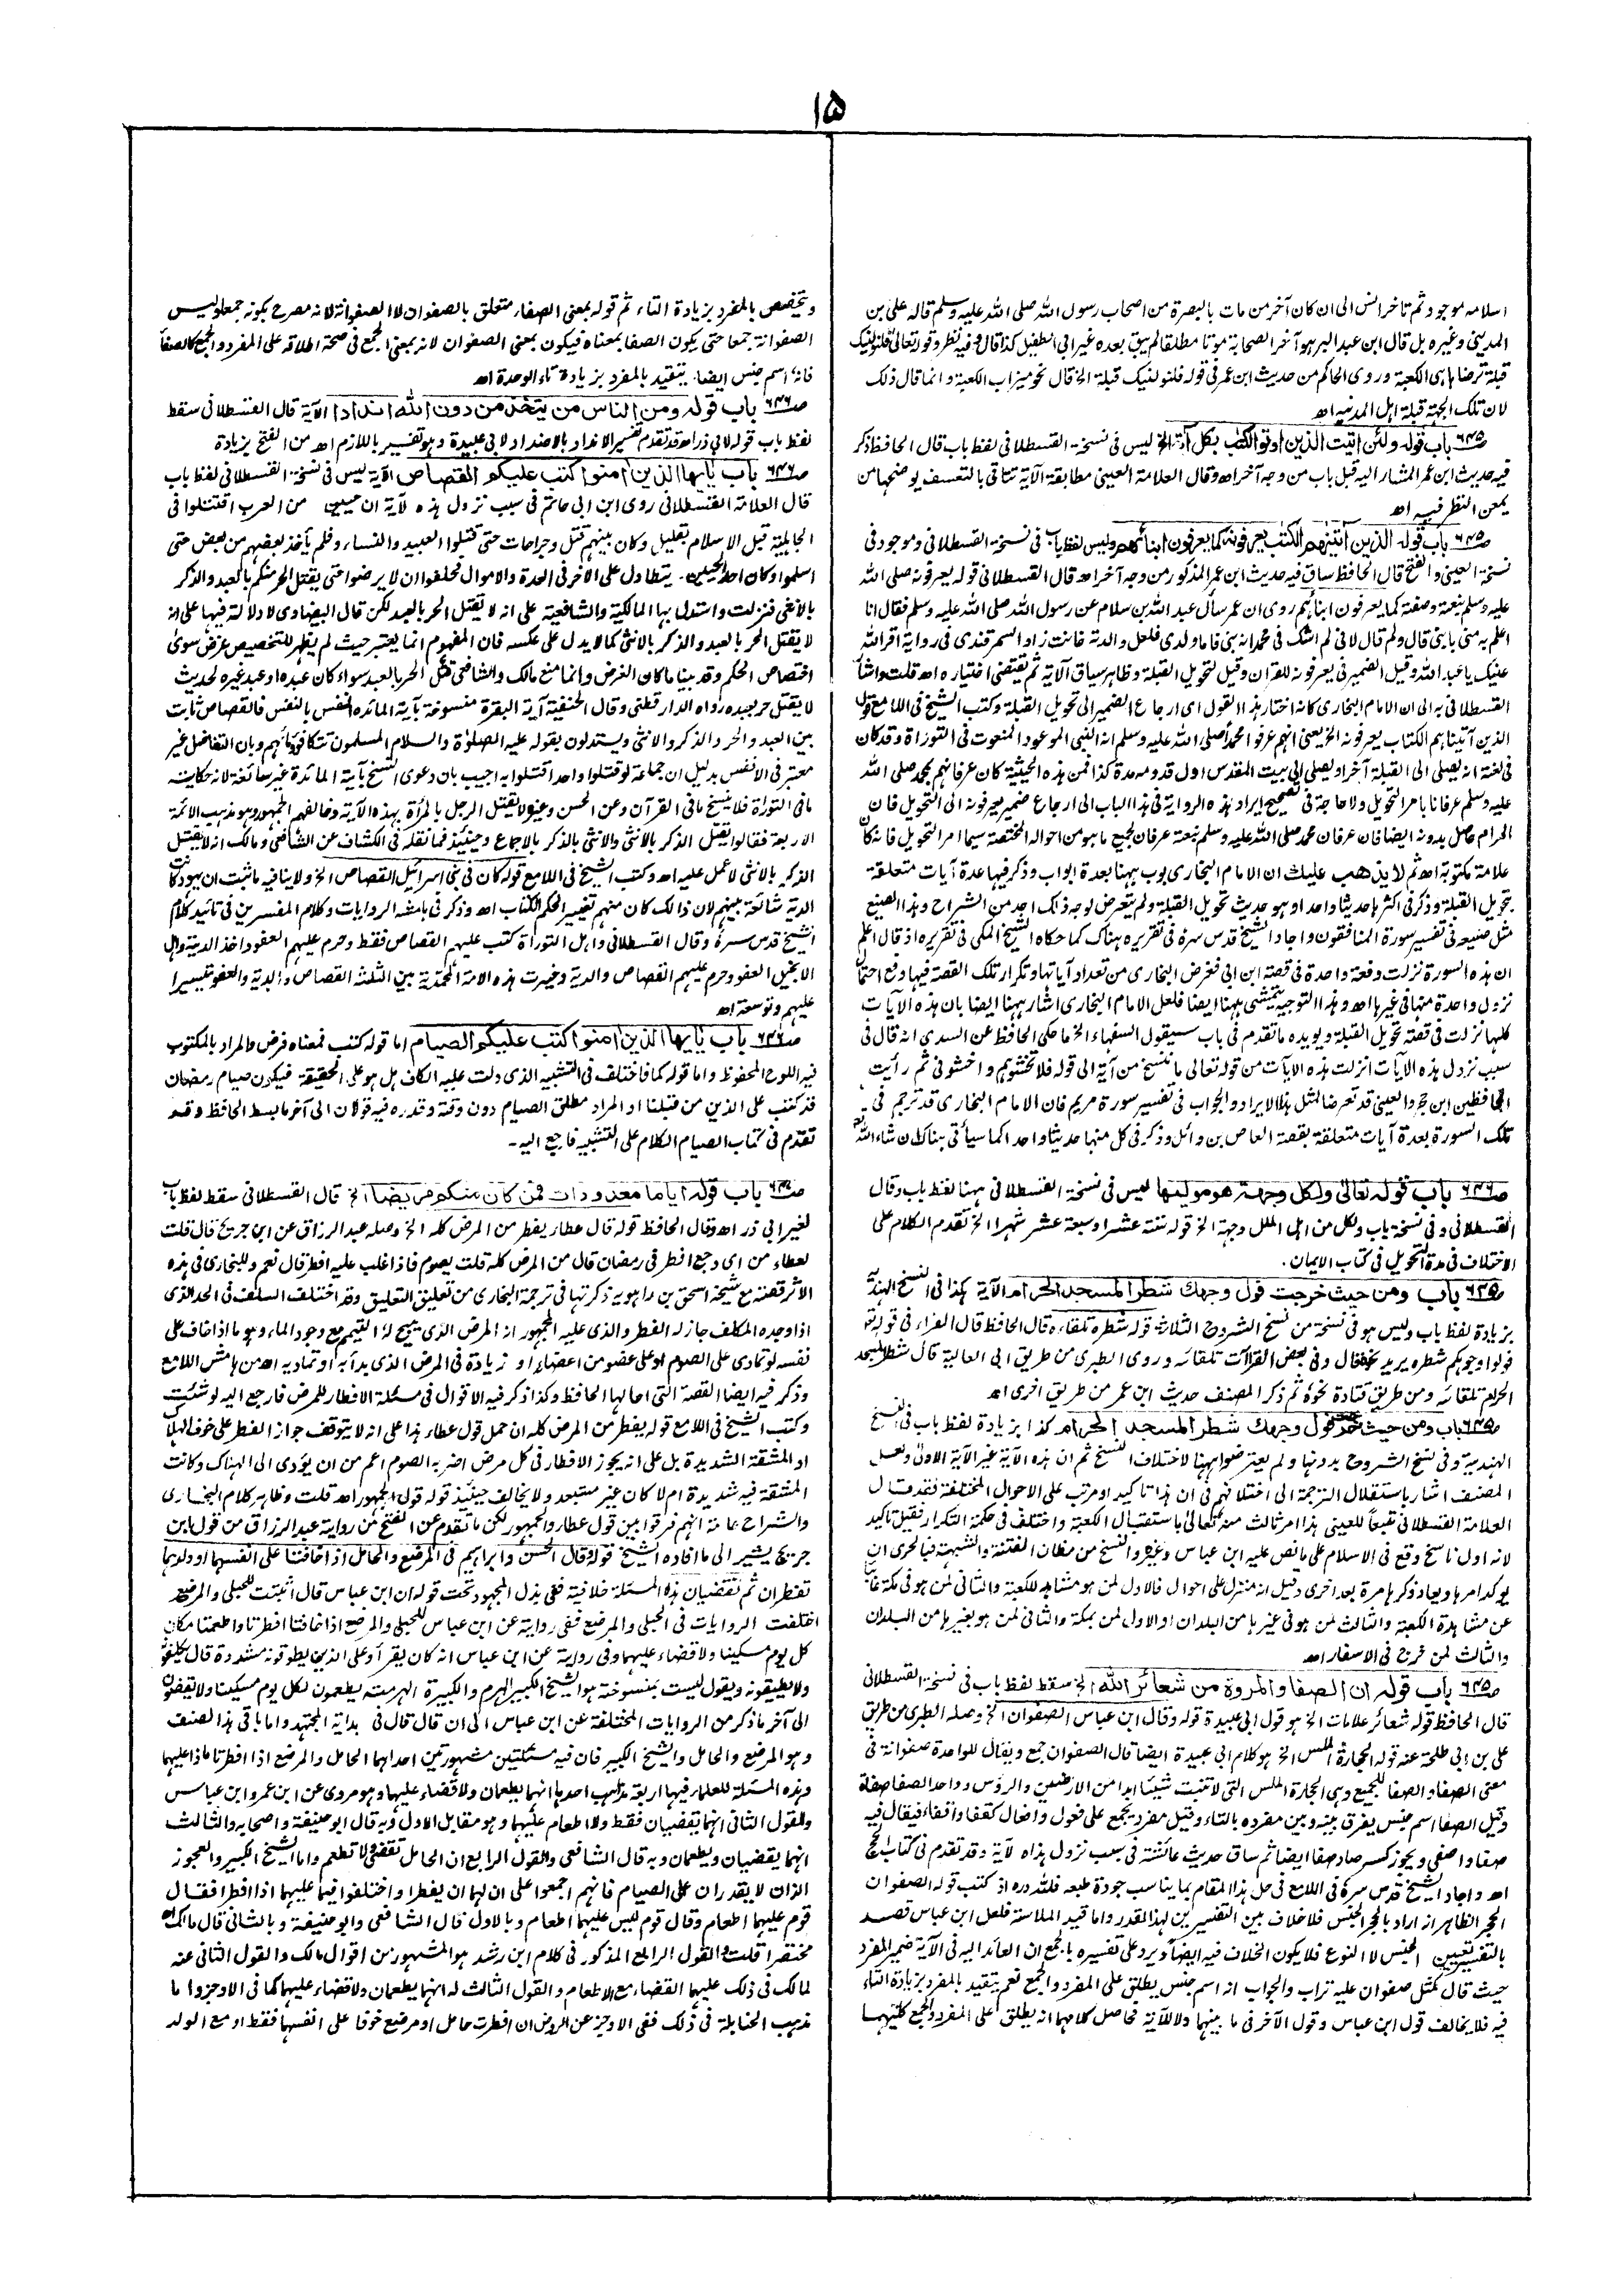 ١٥
اسلامه موجود ثم تاخر انس الى ان كان آخر من مات بالبصرة من اصحاب رسول الله صلى الله عليه وسلم قاله على بن
المدينى وغيره بل قال ابن عبد البر هو آخر الصحابة موتا مطلقا لم يبق بعده غير ابى الطفيل كذا قال وفيه نظر وقوله تعالى فلنولينك
قبلة ترضاها هى الكعبة وروى الحاكم من حديث ابن عمر فى قوله فلنولينك قبلة الخ قال نحو ميزاب الكعبة وانما قال ذلك
لان تلك الجهة قبلة اهل المدينة اه
ص٦٤٥ باب قوله ولئن اتيت الذين اوتوا الكتب بكل آية الخ ليس فى نسخة القسطلانى لفظ باب قال الحافظ ذكر
فيه حديث ابن عمر المشار اليه قبل باب من وجه آخر اه وقال العلامة العينى مطابقة الآية تتاتى بالتعسف يوضحها من
يمعن النظر فيه اه
ص٦٤٥ باب قوله الذين آتينهم الكتب يعرفونه كما يعرفون ابنائهم وليس لفظ باب فى نسخة القسطلانى وموجود فى
نسخة العينى والفتح قال الحافظ ساق فيه حديث ابن عمر المذكور من وجه آخر اه قال القسطلانى قوله يعرفونه صلى الله
عليه وسلم بنعته وصفته كما يعرفون ابنائهم روى ان عمر سأل عبد الله بن سلام عن رسول الله صلى الله عليه وسلم فقال انا
اعلم به منى بابنى قال ولم قال لانى لم اشك فى محمد انه نبى فاما ولدى فلعل والدته خانت زاد السمرقندى فى رواية اقر الله
عينك يا عبد الله وقيل الضمير فى يعرفونه للقرآن وقيل لتحويل القبلة وظاهر سياق الآية ثم يقتضى اختياره اه قلت واشار
القسطلانى به الى ان الامام البخارى كانه اختار هذا القول اى ارجاع الضمير الى تحويل القبلة وكتب الشيخ فى اللامع قوله
الذين آتيناهم الكتاب يعرفونه الخ يعنى انهم عرفوا محمدا صلى الله عليه وسلم انه النبى الموعود المنعوت فى التوراة وقد كان
فى نعته انه يصلى الى القبلة آخرا ويصلى الى بيت المقدس اول قدومه مدة كذا فمن هذه الحيثية كان عرفانهم بمحمد صلى الله
عليه وسلم عرفانا بامر التحويل ولا حاجة فى تصحيح ايراد هذه الرواية فى هذا الباب الى ارجاع ضمير يعرفونه الى التحويل فان
المرام حاصل بدونه ايضا فان عرفان محمد صلى الله عليه وسلم بنعته عرفان لجميع ما هو من احواله المختصة سيما امر التحويل فانه كان
علامة مكتوبة اه ثم لا يذهب عليك ان الامام البخارى بوب ههنا بعدة ابواب وذكر فيها عدة آيات متعلقة
بتحويل القبلة وذكر فى اكثرها حديثا واحدا وهو حديث تحويل القبلة ولم يتعرض لوجه ذلك احد من الشراح وهذا الصنيع
مثل صنيعه فى تفسير سورة المنافقون واجاد الشيخ قدس سره فى تقريره هناك كما حكاه الشيخ المكى فى تقريره اذ قال اعلم
ان هذه السورة نزلت دفعة واحدة فى قصة ابن ابى فغرض البخارى من تعداد آياتها وتكرار تلك القصة فيها دفع احتمال
نزول واحدة منها فى غيرها اه وهذا التوجيه يتمشى ههنا ايضا فلعل الامام البخارى اشار ههنا ايضا بان هذه الآيات
كلها نزلت فى قصة تحويل القبلة ويويده ما تقدم فى باب سيقول السفهاء الخ ما حكى الحافظ عن السدى انه قال فى
سبب نزول هذه الآيات انزلت هذه الآيات من قوله تعالى ما ننسخ من آية الى قوله فلا تخشوهم واخشونى ثم رأيت
الحافظين ابن حجر والعينى قد تعرضا لمثل هذا الايراد والجواب فى تفسير سورة مريم فان الامام البخارى قد ترجم فى
تلك السورة بعدة آيات متعلقة بقصة العاص بن وائل وذكر فى كل منها حديثا واحدا كما سيأتى هناك ان شاء الله
ص٦٤٦ باب قوله تعالى ولكل وجهة هو موليها ليس فى نسخة القسطلانى ههنا لفظ باب وقال
القسطلانى وفى نسخة باب ولكل من اهل الملل وجهة الخ قوله ستة عشر او سبعة عشر شهرا الخ تقدم الكلام على
الاختلاف فى مدة التحويل فى كتاب الايمان.
ص٦٤٥ باب ومن حيث خرجت فول وجهك شطر المسجد الحرام الآية هكذا فى النسخ الهندية
بزيادة لفظ باب وليس هو فى نسخة من نسخ الشروح الثلاث قوله شطره تلقاءه قال الحافظ قال الفراء فى قوله
فولوا وجوهكم شطره يريد نحوه قال وفى بعض القراآت تلقائه وروى الطبرى من طريق ابى العالية قال شطر المسجد
الحرام تلقائه ومن طريق قتادة نحوه ثم ذكر المصنف حديث ابن عمر من طريق اخرى اه
ص٦٤٥ باب ومن حيث خرجت فول وجهك شطر المسجد الحرام كذا بزيادة لفظ باب فى النسخ
الهندية وفى نسخ الشروح بدونها ولم يعترضوا ههنا لاختلاف النسخ ثم ان هذه الآية غير الآية الاولى ولعل
المصنف اشار باستقلال الترجمة الى اختلافهم فى ان هذا تاكيد او مرتب على الاحوال المختلفة فقد قال
العلامة القسطلانى تبعا للعينى هذا امر ثالث منه تعالى باستقبال الكعبة واختلف فى حكمة التكرار فقيل تاكيد
لانه اول ناسخ وقع فى الاسلام على ما نص عليه ابن عباس وغيره والنسخ من مظان الفتنة والشبهة فبالحرى ان
يوكد امرها ويعاد ذكرها مرة بعد اخرى وقيل انه منزل على احوال فالاول لمن هو مشاهد للكعبة والثانى لمن هو فى مكة غائبا
عن مشاهدة الكعبة والثالث لمن هو فى غيرها من البلدان او الاول لمن بمكة والثانى لمن هو بغيرها من البلدان
والثالث لمن خرج فى الاسفار اه
ص٦٤٥ باب قوله ان الصفا والمروة من شعائر الله الخ سقط لفظ باب فى نسخة القسطلانى
قال الحافظ قوله شعائر علامات الخ هو قول ابى عبيدة قوله وقال ابن عباس الصفوان الخ وصله الطبرى من طريق
على بن ابى طلحة عنه قوله الحجارة الملس الخ هو كلام ابى عبيدة ايضا قال الصفوان جمع ويقال للواحدة صفوانة فى
معنى الصفا والصفا للجميع وهى الحجارة الملس التى لا تنبت شيئا ابدا من الارضين والرؤس وواحد الصفا صفاة
وقيل الصفا اسم جنس يفرق بينه وبين مفرده بالتاء وقيل مفرد يجمع على فعول وافعال كقفا واقفاء فيقال فيه
صفا واصفى ويجوز كسر صاد صفا ايضا ثم ساق حديث عائشة فى سبب نزول هذاه لآية وقد تقدم فى كتاب الحج
اه واجاد الشيخ قدس سره فى اللامع فى حل هذا المقام بما يناسب جودة طبعه فلله دره اذ كتب قوله الصفوان
الحجر الظاهر انه اراد بالحجر الجنس فلا خلاف بين التفسيرين لهذا المقدر واما قيد الملاسة فلعل ابن عباس قصد
بالتفسيرين الجنس لا النوع فلا يكون الخلاف فيه ايضا ويرد على تفسيره بالجمع ان العائد اليه فى الآية ضمير المفرد
حيث قال كمثل صفوان عليه تراب والجواب انه اسم جنس يطلق على المفرد والجمع نعم يتقيد بالمفرد بزيادة التاء
فيه فلا يخالف قول ابن عباس وقول الآخر فى ما بينهما ولا للآية فحاصل كلامهما انه يطلق على المفرد والجمع كليهما
ويتخصص بالمفرد بزيادة التاء ثم قوله بمعنى الصفاء متعلق بالصفوان لا الصفوانة لانه مصرح بكونه جمعا وليس
الصفوانة جمعا حتى يكون الصفا بمعناه فيكون بمعنى الصفوان لانه بمعنى الجمع فى صحة اطلاقه على المفرد والجمع كالصفا
فانه اسم جنس ايضا. يتقيد بالمفرد بزيادة تاء الوحدة اه
ص٦٤٦ باب قوله ومن الناس من يتخذ من دون الله اندادا الآية قال القسطلانى سقط
لفظ باب قوله لابى ذر اه قد تقدم تفسير الانداد بالاضداد لابى عبيدة وهو تفسير باللازم اه من الفتح بزيادة
ص٦٤٦ باب يايها الذين امنوا كتب عليكم القصاص الآية ليس فى نسخة القسطلانى لفظ باب
قال العلامة القسطلانى روى ابن ابى حاتم فى سبب نزول هذه لآية ان حيين من العرب اقتتلوا فى
الجاهلية قبل الاسلام بقليل وكان بينهم قتل وجراحات حتى قتلوا العبيد والنساء ولم يأخذ بعضهم من بعض حتى
اسلموا وكان احد الحيين يتطاول على الاخر فى العدة والاموال فحلفوا ان لا يرضوا حتى يقتل الحر منكم بالعبد والذكر
بالانثى فنزلت واستدل بها المالكية والشافعية على انه لا يقتل الحر بالعبد لكن قال البيضاوى لا دلالة فيها على انه
لا يقتل الحر بالعبد والذكر بالانثى كما لا يدل على عكسه فان المفهوم انما يعتبر حيث لم يظهر للتخصيص غرض سوى
اختصاص الحكم وقد بينا ما كان الغرض وانما منع مالك والشافعى قتل الحر بالعبد سواء كان عبده او عبد غيره لحديث
لا يقتل حر بعبد رواه الدار قطنى وقال الحنفية آية البقرة منسوخة بآية المائدة النفس بالنفس فالقصاص ثابت
بين العبد والحر والذكر والانثى ويستدلون بقوله عليه الصلوة والسلام المسلمون تتكافؤ دمائهم وبان التفاضل غير
معتبر فى الانفس بدليل ان جماعة لو قتلوا واحدا قتلوا به اجيب بان دعوى النسخ بآية المائدة غير سائغة لانه حكاية
ما فى التوراة فلا ينسخ ما فى القرآن وعن الحسن وغيره لا يقتل الرجل بالمرأة بهذه الآية وخالفهم الجمهور وهو مذهب الائمة
الاربعة فقالوا يقتل الذكر بالانثى والانثى بالذكر بالاجماع وحينئذ فما نقله فى الكشاف عن الشافعى ومالك انه لا يقتل
الذكر بالانثى لا عمل عليه اه وكتب الشيخ فى اللامع قوله كان فى بنى اسرائيل القصاص الخ ولا ينافيه ما ثبت ان يهود كانت
الدية شائعة بينهم لان ذالك كان منهم تغيير الحكم الكتاب اه وذكر فى هامشه الروايات وكلام المفسرين فى تائيد كلام
الشيخ قدس سره وقال القسطلانى واهل التوراة كتب عليهم القصاص فقط وحرم عليهم العفو واخذ الدية واهل
الانجيل العفو وحرم عليهم القصاص والدية وخيرت هذه الامة المحمدية بين الثلثة القصاص والدية والعفو تيسيرا
عليهم وتوسعة اه
ص٦٤٦ باب يايها الذين امنوا كتب عليكم الصيام اما قوله كتب فمعناه فرض والمراد بالمكتوب
فيه اللوح المحفوظ واما قوله كما فاختلف فى التشبيه الذى دلت عليه الكاف هل هو على الحقيقة فيكون صيام رمضان
قد كتب على الذين من قبلنا او المراد مطلق الصيام دون وقته وقدره فيه قولان الى آخر ما بسط الحافظ وقد
تقدم فى كتاب الصيام الكلام على التشبيه فارجع اليه۔
ص٦٤٧ باب قوله اياما معدودات فمن كان منكم مريضا الخ قال القسطلانى سقط لفظ باب
لغير ابى ذر اه وقال الحافظ قوله قال عطاء يفطر من المرض كله الخ وصله عبد الرزاق عن ابن جريج قال قلت
لعطاء من اى وجع افطر فى رمضان قال من المرض كله قلت يصوم فاذا غلب عليه افطر قال نعم وللبخارى فى هذه
الاثر قصة مع شيخه اسحق بن راهويه ذكرتها فى ترجمة البخارى من تعليق التعليق وقد اختلف السلف فى الحد الذى
اذا وجده المكلف جاز له الفطر والذى عليه الجمهور انه المرض الذى يبيح له التيمم مع وجود الماء وهو ما اذا خاف على
نفسه لو تمادى على الصوم او على عضو من اعضاءه او زيادة فى المرض الذى بدأ به او تماديه اه من هامش اللامع
وذكر فيه ايضا القصة التى احالها الحافظ وكذا ذكر فيه الاقوال فى مسئلة الافطار للمرض فارجع اليه لو شئت
وكتب الشيخ فى اللامع قوله يفطر من المرض كله ان حمل قول عطاء هذا على انه لا يتوقف جواز الفطر على خوف الهلاك
او المشقة الشديدة بل على انه يجوز الافطار فى كل مرض اضر به الصوم اعم من ان يؤدى الى الهلاك وكانت
المشقة فيه شديدة ام لا كان غير مستبعد ولا يخالف حينئذ قوله قول الجمهور اه قلت وظاهر كلام البخارى
والشراح عامة انهم فرقوا بين قول عطاء والجمهور لكن ما تقدم عن الفتح من رواية عبد الرزاق من قول ابن
جريج يشير الى ما افاده الشيخ قوله وقال الحسن وابراهيم فى المرضع والحامل اذا خافتا على انفسهما او ولدهما
تفطران ثم تقضيان هذه المسئلة خلافية ففى بذل المجهود تحت قوله ان ابن عباس قال اثبتت للحبلى والمرضع
اختلفت الروايات فى الحبلى والمرضع ففى رواية عن ابن عباس للحبلى والمرضع اذا خافتا افطرتا واطعمتا مكان
كل يوم مسكينا ولا قضاء عليهما وفى رواية عن ابن عباس انه كان يقرأ وعلى الذين يطوقونه مشددة قال يكلفونه
ولا يطيقونه ويقول ليست بمنسوخة هو الشيخ الكبير الهرم والكبيرة الهرمة يطعمون لكل يوم مسكينا ولا يقضون
الى آخر ما ذكر من الروايات المختلفة عن ابن عباس الى ان قال قال فى بداية المجتهد واما باقى هذا الصنف
وهو المرضع والحامل والشيخ الكبير فان فيه مسئلتين مشهورتين احداهما الحامل والمرضع اذا افطرتا ماذا عليهما
وهذه المسئلة للعلماء فيها اربعة مذاهب احدها انهما يطعمان ولا قضاء عليهما وهو مروى عن ابن عمر وابن عباس
والقول الثانى انهما يقضيان فقط ولا اطعام عليهما وهو مقابل الاول وبه قال ابو حنيفة واصحابه والثالث
انهما يقضيان ويطعمان وبه قال الشافعى والقول الرابع ان الحامل تقضى ولا تطعم واما الشيخ الكبير والعجوز
الذان لا يقدران على الصيام فانهم اجمعوا على ان لهما ان يفطرا واختلفوا فيما عليهما اذا افطرا فقال
قوم عليهما اطعام وقال قوم ليس عليهما اطعام وبالاول قال الشافعى وابو حنيفة وبالثانى قال مالك اه
مختصرا قلت والقول الرابع المذكور فى كلام ابن رشد هو المشهور من اقوال مالك والقول الثانى عنه
لمالك فى ذلك عليهما القضاء مع الاطعام والقول الثالث له انهما يطعمان ولا قضاء عليهما كما فى الاوجز واما
مذهب الحنابلة فى ذلك ففى الاوجز عن الروض ان افطرت حامل او مرضع خوفا على انفسهما فقط او مع الولد